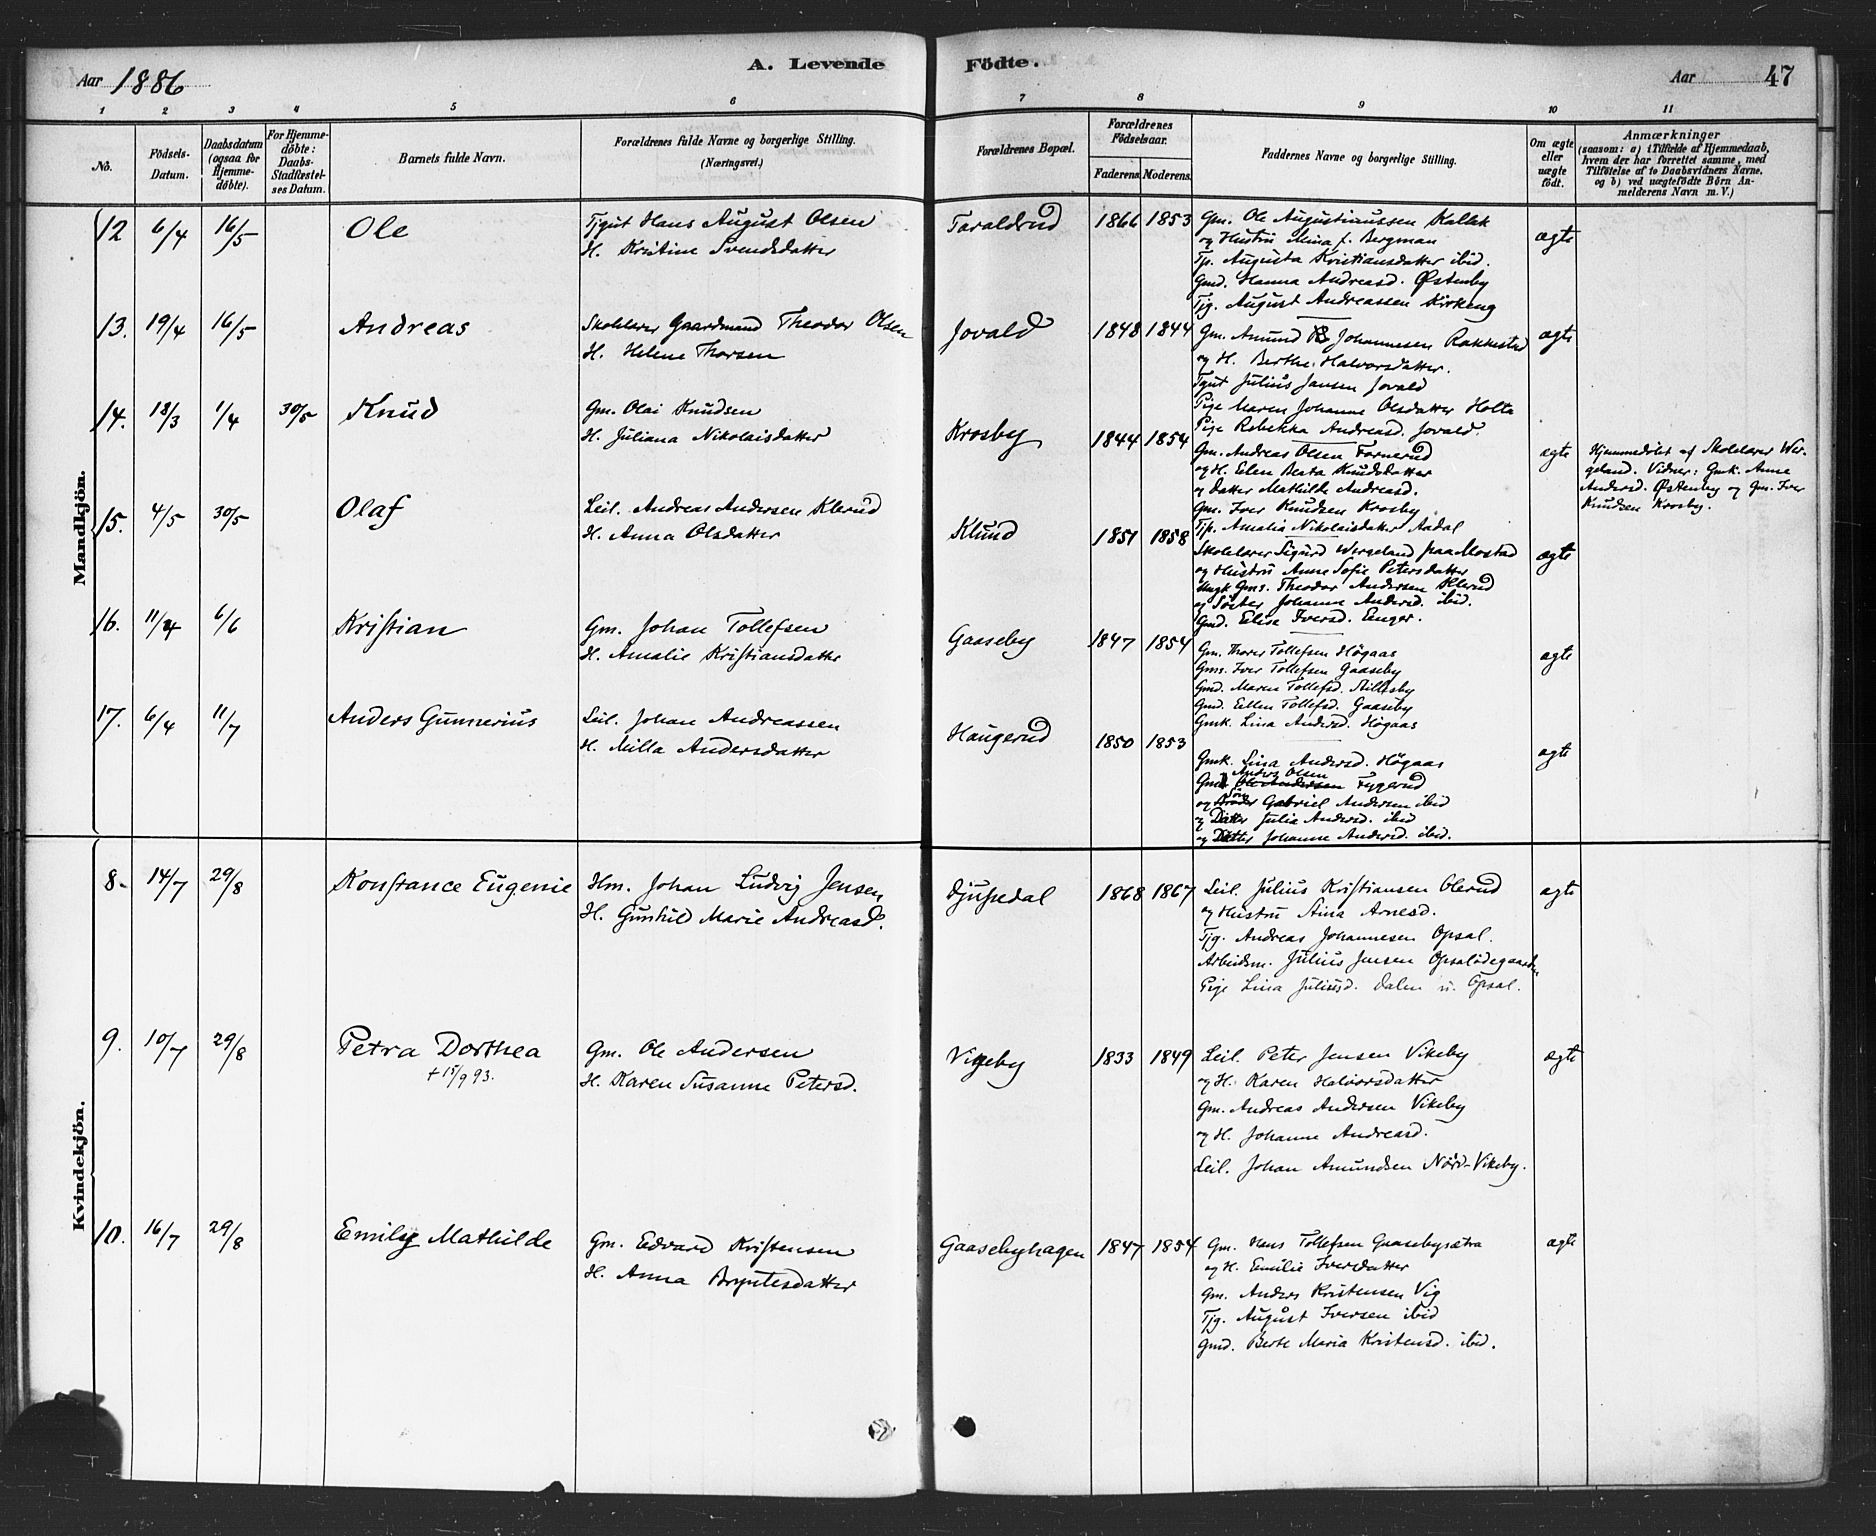 Aar 1886
A. Levende Födte.
Aar 47
1 2 3 4 5 6 7 8 9 10 11
No.
Födsels-Datum.
Daabsdatum (ogsaa for Hjemmedøbte).
For Hjemmedöbte: Daabs-Stadfæstelses Datum.
Barnets fulde Navn.
Forældrenes fulde Navne og borgerlige Stilling. (Næringsvei.)
Forældrenes Bopæl.
Forældrenes Födselsaar.
Faderens. Moderens.
Faddernes Navne og borgerlige Stilling.
Om ægte eller uægte födt.
Anmærkninger
(saasom: a) i Tilfælde af Hjemmedaab, hvem der har forrettet samme, med Tilföielse af to Daabsvidners Navne, og b) ved uægtefödte Börn Anmelderens Navn m. V.)
Mandkjön.
12 6/4 16/5 Ole Tjgut Hans August Olsen Taraldrud 1866 1853 Gm. Ole Augustinussen Kallak ægte
H. Kristine Svendsdatter og Hustru Mina f. Bergman
Tp. Augusta Kristiansdatter ibid.
Gmd. Hanna Andreasd. Østenby
Tjg. August Andreassen Kirkeng
13. 19/4 16/5 Andreas Skolelærer Gaardmand Theodor Olsen Jovald 1848 1844 Gm. Amund Johannesen Rakkestad ægte
H. Helene Thorsen og H. Berthe Halvorsdatter.
Tgut Julius Jansen Jovald
Pige Maren Johanne Olsdatter Holte
Pige Rebekka Andreasd. Jovald.
14. 18/3 1/4 30/5 Knud Gm. Olai Knudsen Krosby 1844 1854 Gm. Andreas Olsen Tornerud ægte
H. Juliana Nikolaisdatter og H. Elen Beata Knudsdatter
og Datter Mathilde Andreasd.
Gm. Iver Knudsen Krosby
Tjp. Amalia Nikolaisdatter Aadal
Hjemmedöbt af Skolelærer Wergeland. Vidner: Gmk. Anne
Andersd. Østenby og Gm. Iver
Knudsen Krosby.
15. 4/5 30/5 Olaf Leil. Andreas Andersen Klerud Klund 1851 1858 Skolelærer Sigurd Wergeland paa Mostad ægte
H. Anna Olsdatter og Hustru Anne Sofie Petersdatter
Ungk. Gms. Theodor Andersen Klerud
og Söster Johanne Andersd. ibid.
Gmd. Elisa Iversd. Enger.
16. 11/4 6/6 Kristian Gm. Johan Tollefsen Gaaseby 1847 1854 Gm. Thorer Tollefsen Högaas ægte
H. Amalie Kristiansdatter Gms. Iver Tollefsen Gaaseby
Gmd. Maren Tollefsd. Stillesby
Gmd. Ellen Tollefsd. Gaaseby
Gmk. Lina Andersd. Högaas
17. 6/4 11/7 Anders Gunnerius Leil. Johan Andreassen Haugerud 1850 1853 Gmk. Lina Andersd. Högaas ægte
H. Milla Andersdatter Anders Olsen
Gm. Ole Andersen Fygerud
og Brøder Sön Gabriel Andersen ibid
og Datter Julia Andersd. ibid
og Datter Johanne Andersd. ibid.
Kvindekjön.
8. 14/7 29/8 Konstance Eugenie Hm. Johan Ludvig Jensen Djupedal 1868 1867 Leil. Julius Kristiansen Olerud ægte
H. Gunhild Marie Andreasd. og Hustru Stina Arnesd.
Tjg. Andreas Johannesen Opsal.
Arbeidsm. Julius Jensen Opsalödegaarden
Pige Lina Juliusd. Dalen u. Opsal.
9. 10/7 29/8 Petra Dorthea Gm. Ole Andersen Vigeby 1833 1849 Leil. Peter Jensen Vikeby ægte
+ 15/9 93. H. Karen Susanne Petersd. og H. Karen Halvorsdatter
Gm. Andreas Andersen Vikeby
og H. Johanne Andreasd.
Leil. Johan Amundsen Nord-Vikeby.
10. 16/7 29/8 Emily Mathilde Gm. Edvard Kristensen Gaasebyhagen 1847 1854 Gm. Hans Tollefsen Gaasebysætra ægte
H. Anna Bryntesdatter og H. Emilie Iversdatter
Gm. Anders Kristensen Vig
Tjg. August Iversen ibid
Gmd. Berte Maria Kristensd. ibid.